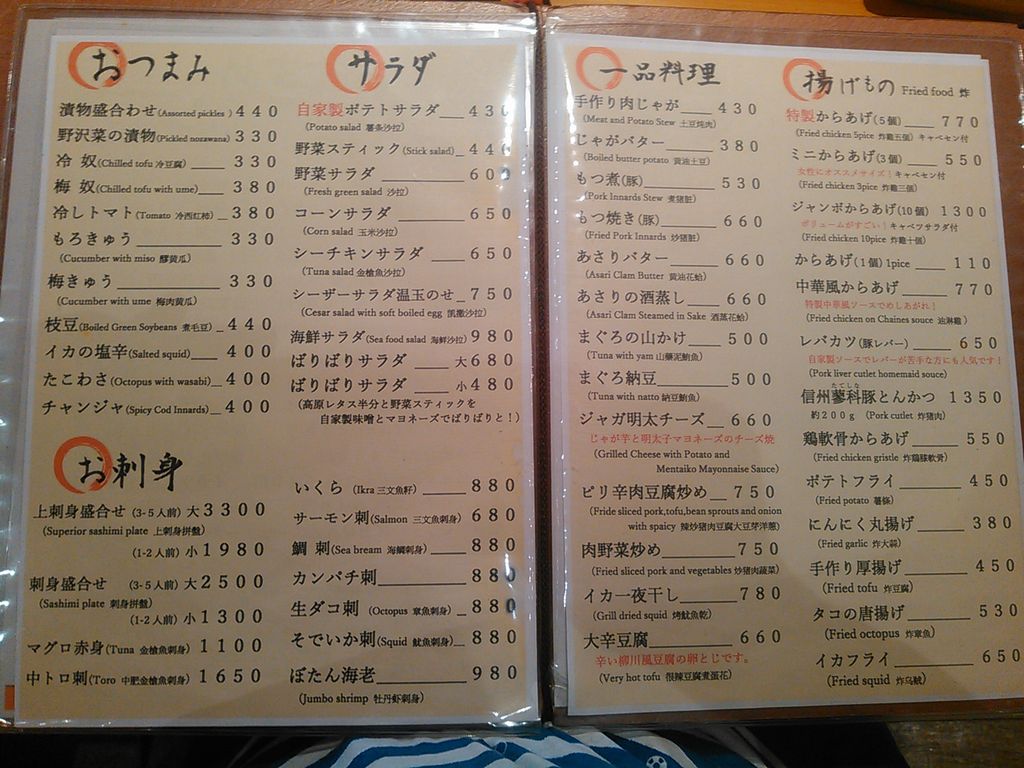 おつまみ
漬物盛合わせ(Assorted pickles ) 440
野沢菜の漬物(Pickled nozawana) 330
冷 奴(Chilled tofu 冷豆腐) 330
梅 奴(Chilled tofu with ume) 380
冷しトマト(Tomato 冷西红柿) 380
もろきゅう 330
(Cucumber with miso 醪黄瓜)
梅きゅう 330
(Cucumber with ume 梅肉黄瓜)
枝豆(Boiled Green Soybeans 煮毛豆) 440
イカの塩辛(Salted squid) 400
たこわさ(Octopus with wasabi) 400
チャンジャ(Spicy Cod Innards) 400
サラダ
自家製ポテトサラダ 430
(Potato salad 薯条沙拉)
野菜スティック(Stick salad) 440
野菜サラダ 600
(Fresh green salad 沙拉)
コーンサラダ 650
(Corn salad 玉米沙拉)
シーチキンサラダ 650
(Tuna salad 金槍魚沙拉)
シーザーサラダ温玉のせ 750
(Cesar salad with soft boiled egg 凯撒沙拉)
海鮮サラダ(Sea food salad 海鲜沙拉) 980
ばりばりサラダ 大 680
ばりばりサラダ 小 480
(高原レタス半分と野菜スティックを
自家製味噌とマヨネーズでばりばりと！)
お刺身
上刺身盛合せ (3-5人前) 大 3300
(Superior sashimi plate 上刺身拼盤)
(1-2人前) 小 1980
刺身盛合せ (3-5人前) 大 2500
(Sashimi plate 刺身拼盤)
(1-2人前) 小 1300
マグロ赤身(Tuna 金槍魚刺身) 1100
中トロ刺(Toro 中肥金槍魚刺身) 1650
いくら (Ikra 三文魚籽) 880
サーモン刺(Salmon 三文魚刺身) 680
鯛 刺(Sea bream 海鯛刺身) 880
カンパチ刺 880
生ダコ刺 (Octopus 章魚刺身) 880
そでいか刺(Squid 魷魚刺身) 880
ぼたん海老 980
(Jumbo shrimp 牡丹虾刺身)
一品料理
手作り肉じゃが 430
(Meat and Potato Stew 土豆炖肉)
じゃがバター 380
(Boiled butter potato 黄油土豆)
もつ煮(豚) 530
(Pork Innards Stew 煮猪脏)
もつ焼き(豚) 660
(Fried Pork Innards 炒猪脏)
あさりバター 660
(Asari Clam Butter 黄油花蛤)
あさりの酒蒸し 660
(Asari Clam Steamed in Sake 酒蒸花蛤)
まぐろの山かけ 500
(Tuna with yam 山藥泥鮪魚)
まぐろ納豆 500
(Tuna with natto 納豆鮪魚)
ジャガ明太チーズ 660
じゃが芋と明太子マヨネーズのチーズ焼
(Grilled Cheese with Potato and
Mentaiko Mayonnaise Sauce)
ピリ辛肉豆腐炒め 750
(Fride sliced pork,tofu,bean sprouts and onion
with spaicy 辣炒猪肉豆腐大豆芽洋葱)
肉野菜炒め 750
(Fried sliced pork and vegetables 炒猪肉蔬菜)
イカ一夜干し 780
(Grill dried squid 烤魷魚乾)
大辛豆腐 660
辛い柳川風豆腐の卵とじです。
(Very hot tofu 很辣豆腐煮蛋花)
揚げもの Fried food 炸
特製からあげ(5個) 770
(Fried chicken 5pice 炸雞五個) キャベセン付
ミニからあげ(3個) 550
女性にオススメサイズ！キャベセン付
(Fried chicken 3pice 炸雞三個)
ジャンボからあげ(10個) 1300
ボリュームがすごい！キャベツサラダ付
(Fried chicken 10pice 炸雞十個)
からあげ(1個) 1pice 110
中華風からあげ 770
特製中華風ソースでめしあがれ！
(Fried chicken on Chaines souce 油淋雞 )
レバカツ(豚レバー) 650
自家製ソースでレバーが苦手な方にも人気です！
(Pork liver cutlet homemaid souce)
たてしな
信州蓼科豚とんかつ 1350
約200g (Pork cutlet 炸猪肉)
鶏軟骨からあげ 550
(Fried chicken gristle 炸鶏膝軟骨)
ポテトフライ 450
(Fried potato 薯條)
にんにく丸揚げ 380
(Fried garlic 炸大蒜)
手作り厚揚げ 450
(Fried tofu 炸豆腐)
タコの唐揚げ 530
(Fried octopus 炸章魚)
イカフライ 650
(Fried squid 炸乌贼)